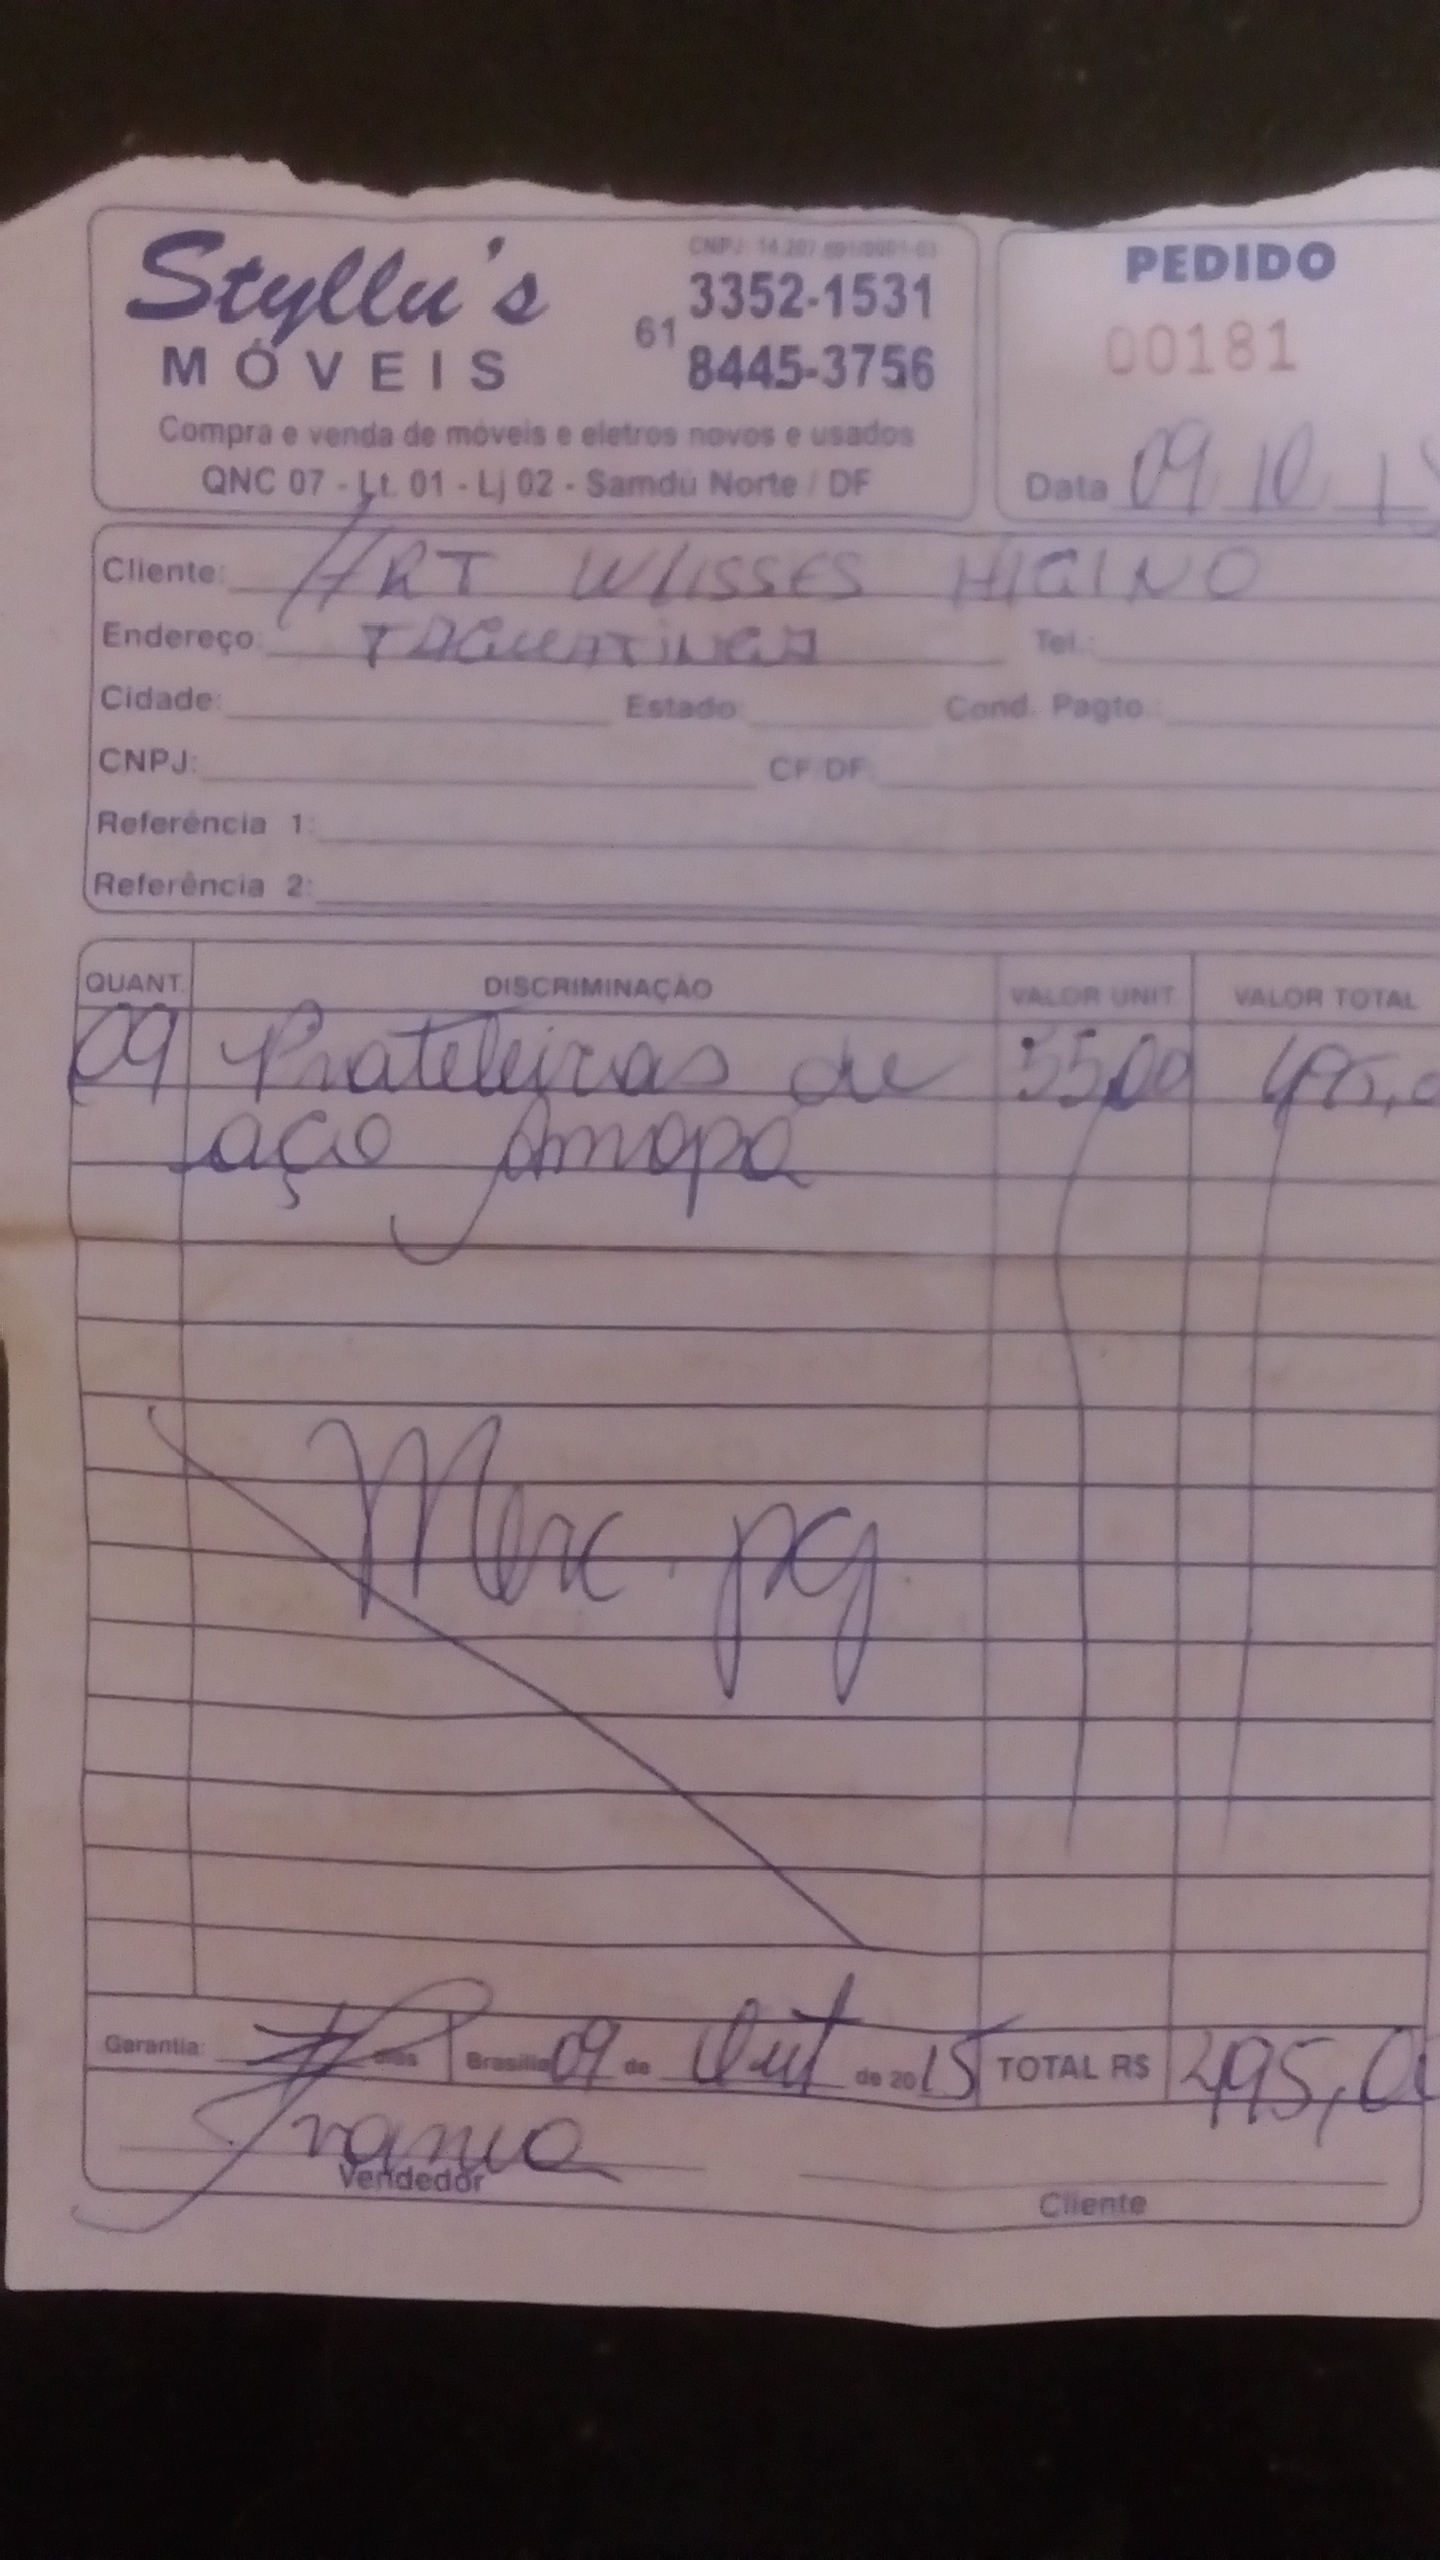 Styllu's
MÓVEIS
CNPJ: 14.207.
61 3352-1531
8445-3756
Compra e venda de móveis e eletros novos e usados
QNC 07 - Lt. 01 - Lj 02 - Samdú Norte / DF
PEDIDO
00181
Data 09 10 15
Cliente: ART ULISSES HIGINO
Endereço TAGUATINGA Tel.:
Cidade: Estado: Cond. Pagto.:
CNPJ: CF/DF:
Referência 1:
Referência 2:
QUANT. DISCRIMINAÇÃO VALOR UNIT. VALOR TOTAL
09 Prateleiras de 55,00 495,0
aço
Merc. pg
Garantia: dias Brasília 09 de Out de 2015 TOTAL R$ 495,00
Vendedor
Cliente